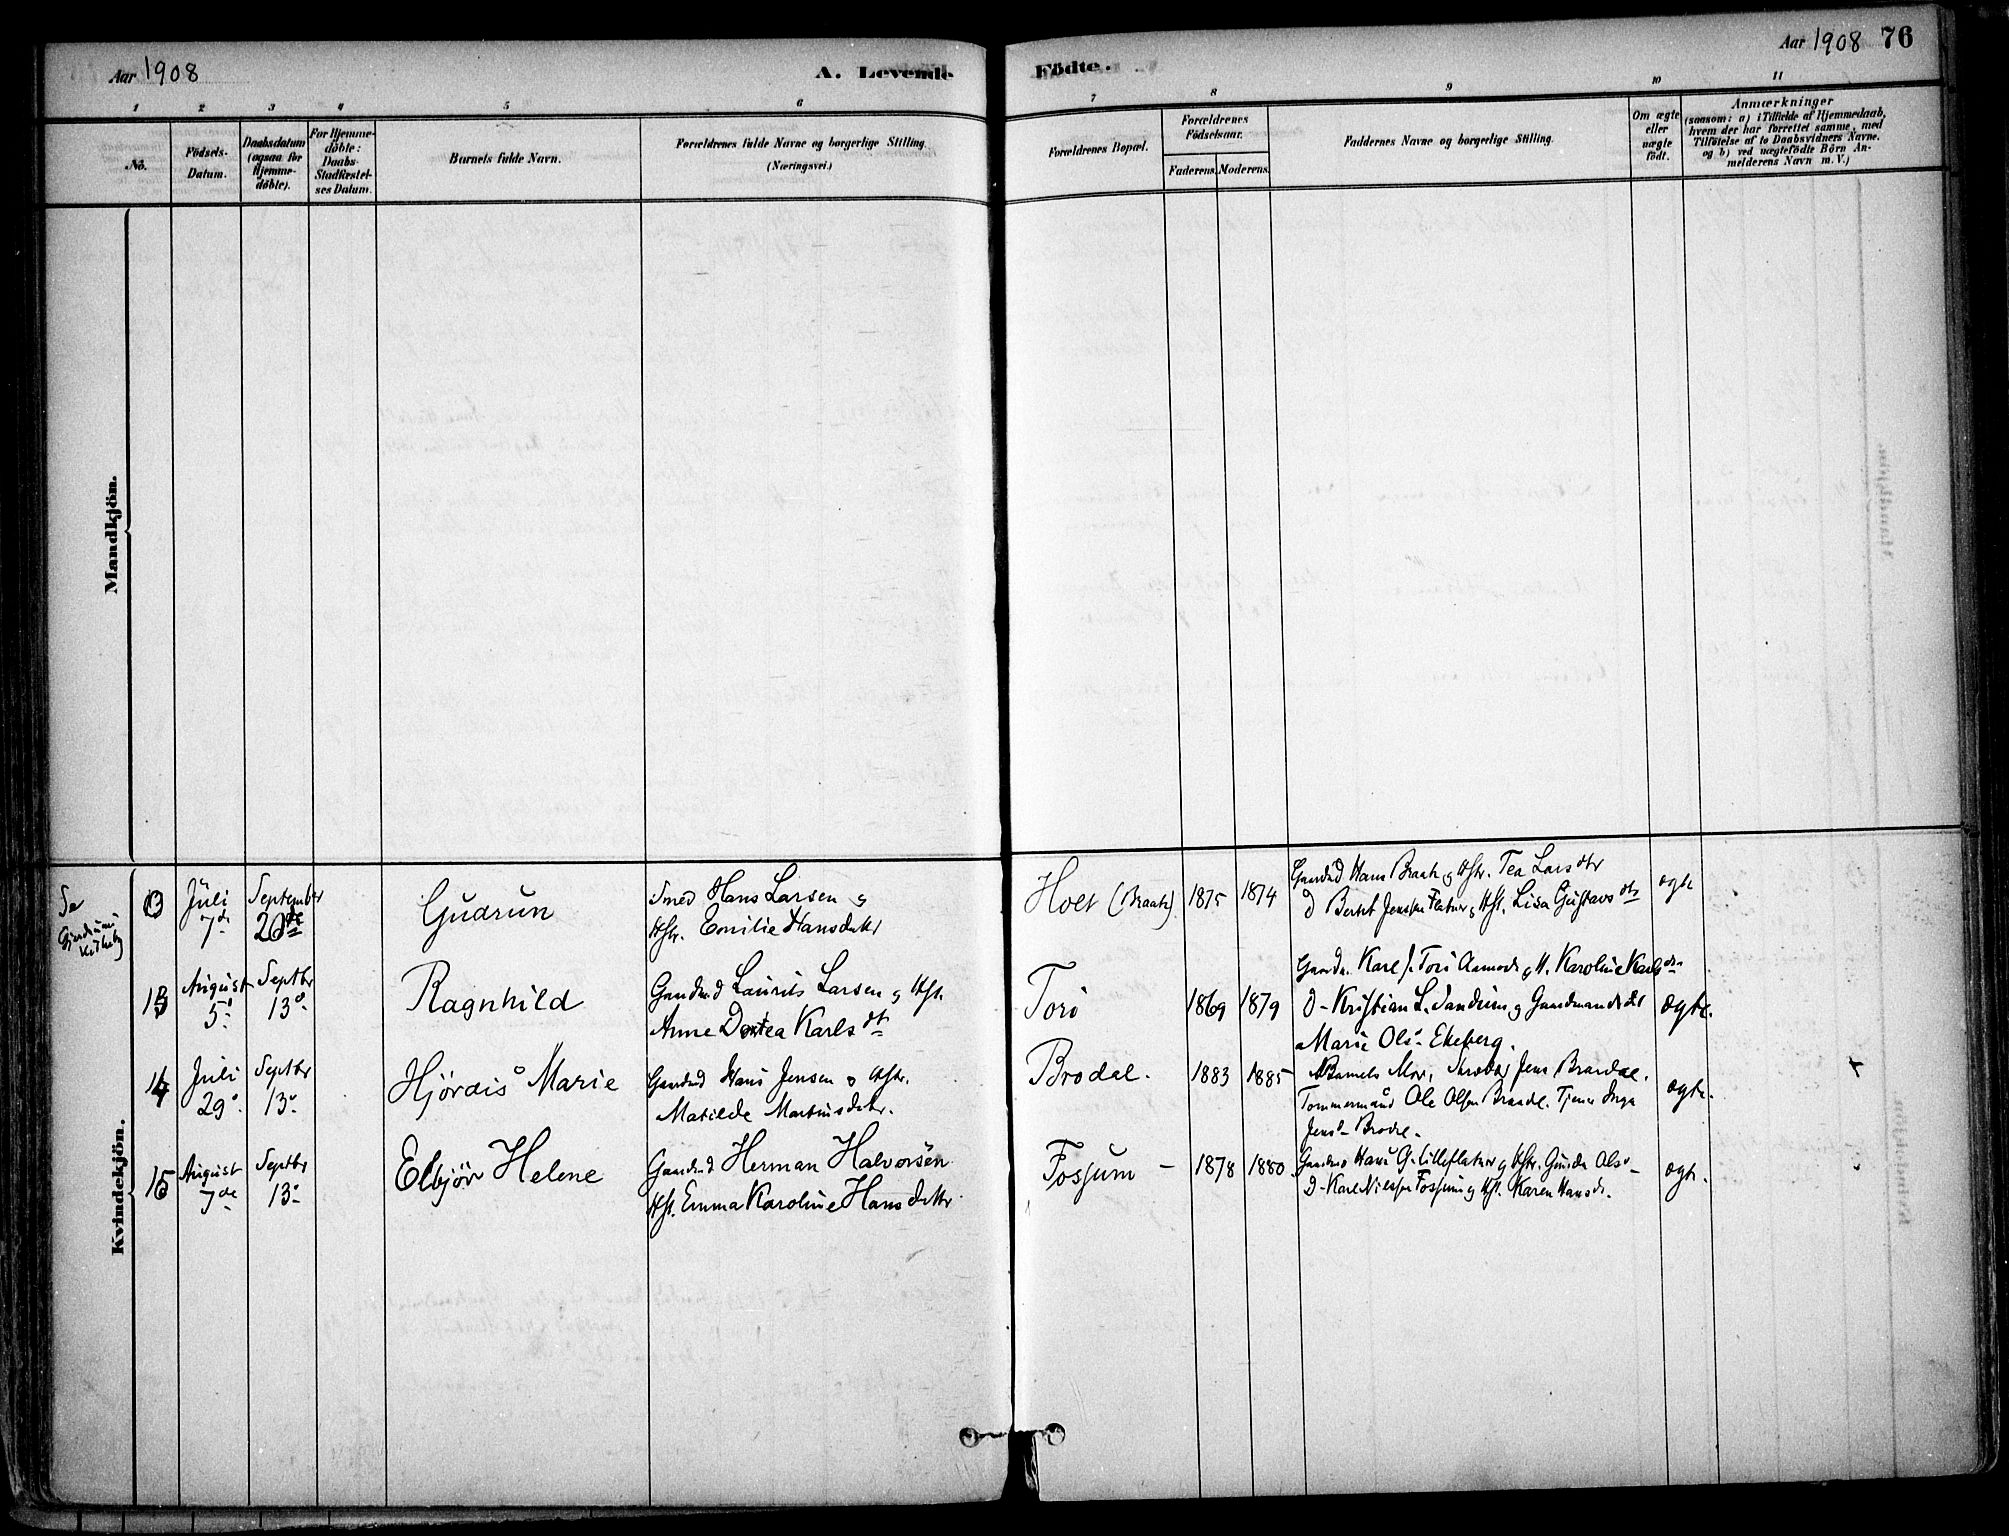 Aar 1908
A. Levende
Fødte.
Aar 1908 76
1 2 3 4 5 6 7 8 9 10 11
No.
Födsels-
Datum.
Daabsdatum
(ogsaa for
Hjemme-
döbte).
For Hjemme-
döbte:
Daabs-
Stadfæstel-
ses Datum.
Barnets fulde Navn.
Forældrenes fulde Navne og borgerlige Stilling.
(Næringsvei.)
Forældrenes Bopæl.
Forældrenes
Födselsaar.
Faderens. Moderens.
Faddernes Navne og borgerlige Stilling.
Om ægte
eller
uægte
födt.
Anmærkninger
(saasom: a) i Tilfælde af Hjemmedaab,
hvem der har forrettet samme, med
Tilföielse af to Daabsvidners Navne.
og b) ved uægtefödte Börn An-
melderens Navn m. V.)
Mandkjön.
Kvindekjön.
Juli
7de
September
20de
Gudrun
Smed Hans Larsen &
Hstr. Emilie Hansdatter
Holt (Braate)
1875 1874
Gaardbd Hans Braate & Hstr. Tea Larsdtr
Lisa Gustavsdtr
ægte
13
August
5
Septbr
13
Ragnhild
Gaardbd Laurits Larsen & Hst.
Anne Dortea Karlsdt
Tori
1869 1879
Karl Tori & H. Karoline Karlsdtr
D- Kristian L. &
Marie Ols- Ekeberg.
ægte.
14
Juli
29
Septbr
13
Hjördis Marie
Gaardbd Hans Jensen & Hstr.
Matilde Martinsdatr.
Brodal.
1883 1885
Barnets Mor, Jens
Tømmermand Ole Olsen Tjener Inga
Jens-
ægte.
15
August
7de
Septbr
13
Elbjör Helene
Gaardbd Herman Halvorsen
Hst. Emma Karoline Hansdatter
Fossum -
1878 1880
Gaardbd Hans G. Lilleflatner & Hstr. Gunda Ols-
D- Karl Nielsen Fossum & Hst. Karen Hansdt.
ægte.